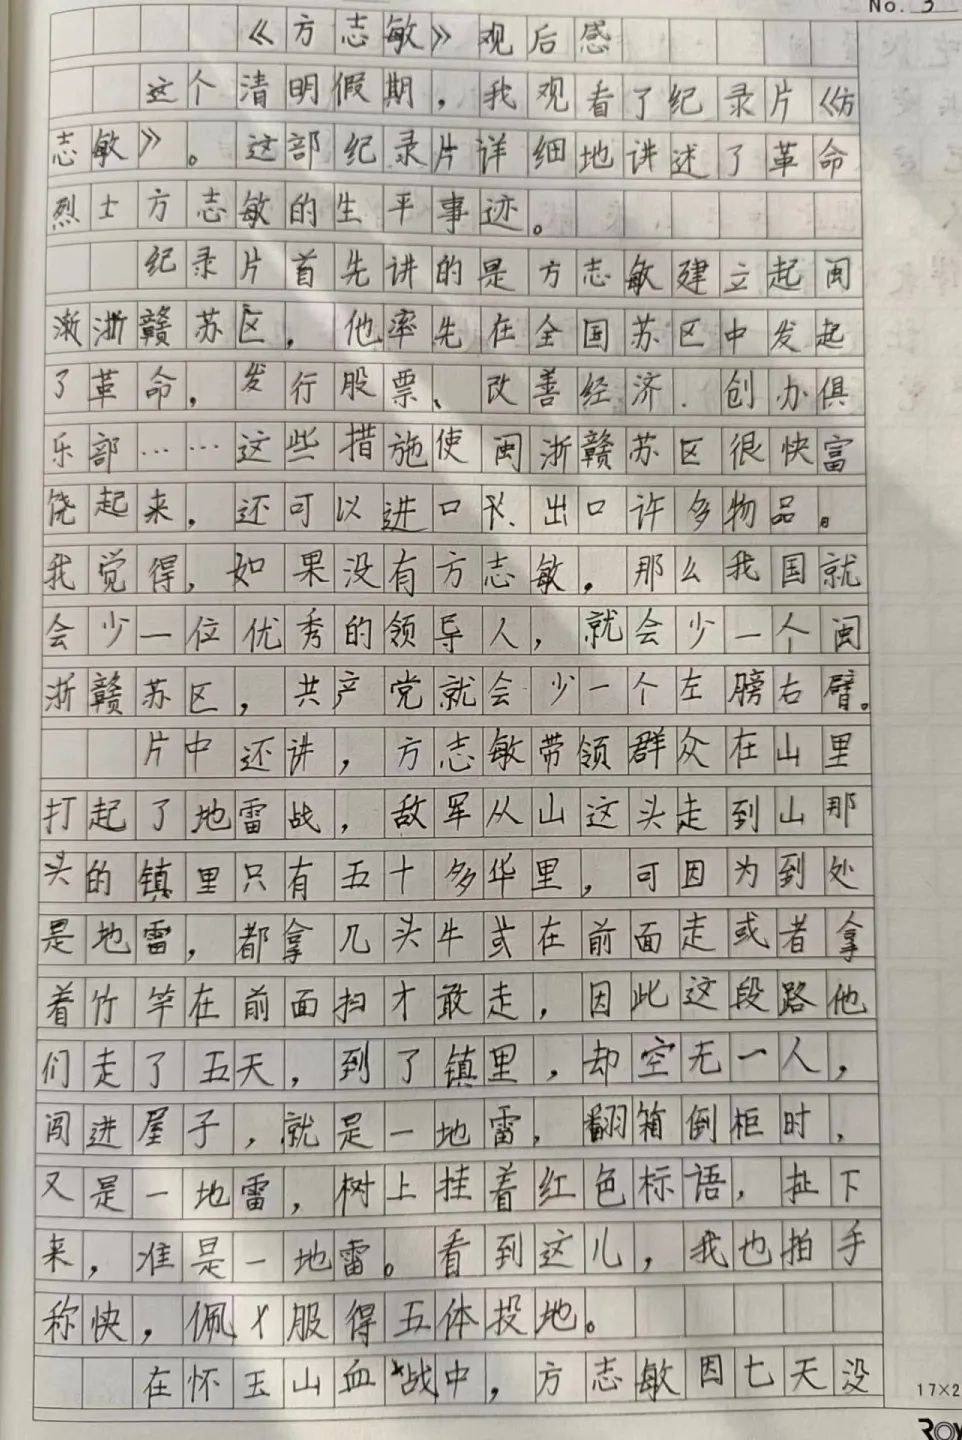 No. 3
《方志敏》观后感
这个清明假期，我观看了纪录片《方
志敏》。这部纪录片详细地讲述了革命
烈士方志敏的生平事迹。
纪录片首先讲的是方志敏建立起闽
浙赣苏区，他率先在全国苏区中发起
了革命，发行股票、改善经济、创办俱
乐部……这些措施使闽浙赣苏区很快富
饶起来，还可以进口、出口许多物品。
我觉得，如果没有方志敏，那么我国就
会少一位优秀的领导人，就会少一个闽
浙赣苏区，共产党就会少一个左膀右臂。
片中还讲，方志敏带领群众在山里
打起了地雷战，敌军从山这头走到山那
头的镇里只有五十多华里，可因为到处
是地雷，都拿几头牛或在前面走或者拿
着竹竿在前面扫才敢走，因此这段路他
们走了五天，到了镇里，却空无一人，
闯进屋子，就是一地雷，翻箱倒柜时，
又是一地雷，树上挂着红色标语，扯下
来，准是一地雷。看到这儿，我也拍手
称快，佩服得五体投地。
在怀玉山血战中，方志敏因七天没
17×2
ROY